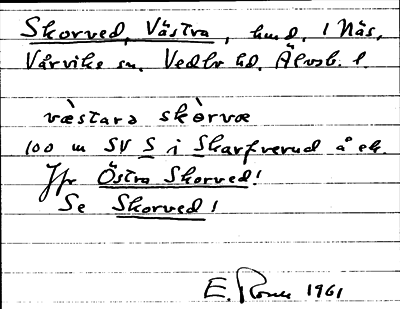 Skorved, Västra, hmd, i Näs,
Vårviks sn. Vedbo hd. Älvsb. l.
væ̀stara skò̀rvæ
100 m SV S i Skarfverud å ek.
Jfr Östra Skorved!
Se Skorved!
E. 1961